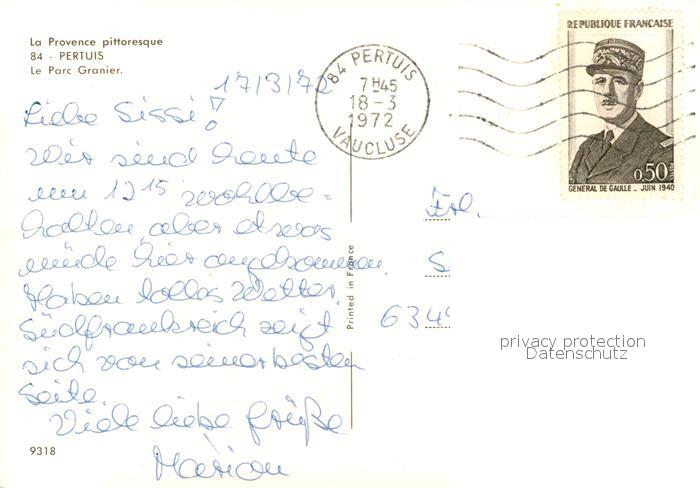 La Provence pittoresque
84 - PERTUIS
Le Parc Granier.
17/3/72
Liebe Sissi!
Wir sind heute
um 12 15 wohlbe=
halten, aber etwas
müde hier angekommen.
Haben tolles Wetter.
Südfrankreich zeigt
sich von seiner besten
Seite.
Viele liebe Grüße
Marion
9318
Printed in France
84 PERTUIS
7H45
18-3
1972
VAUCLUSE
REPUBLIQUE FRANCAISE
0,50
GENERAL DE GAULLE _ JUIN 1940
Frl.
S
634
privacy protection
Datenschutz